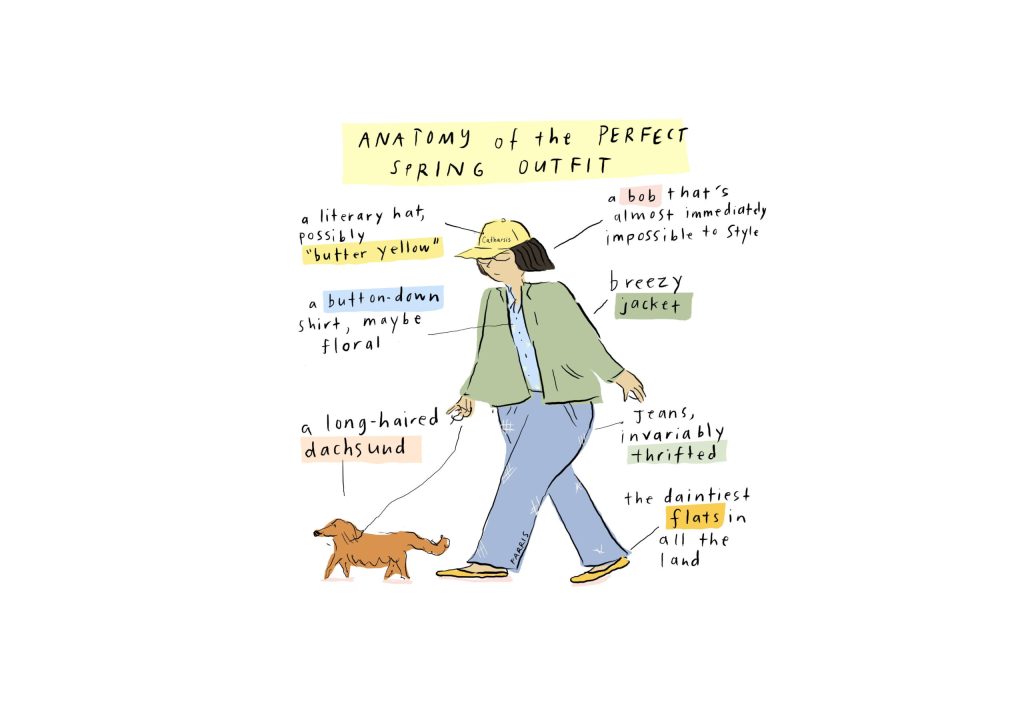 ANATOMY of the PERFECT
SPRING OUTFIT
a literary hat,
possibly
"butter yellow"
Catharsis
a bob that's
almost immediately
impossible to style
a button-down
shirt, maybe
floral
breezy
jacket
a long-haired
dachsund
Jeans,
invariably
thrifted
the daintiest
flats in
all the
land
PARRIS